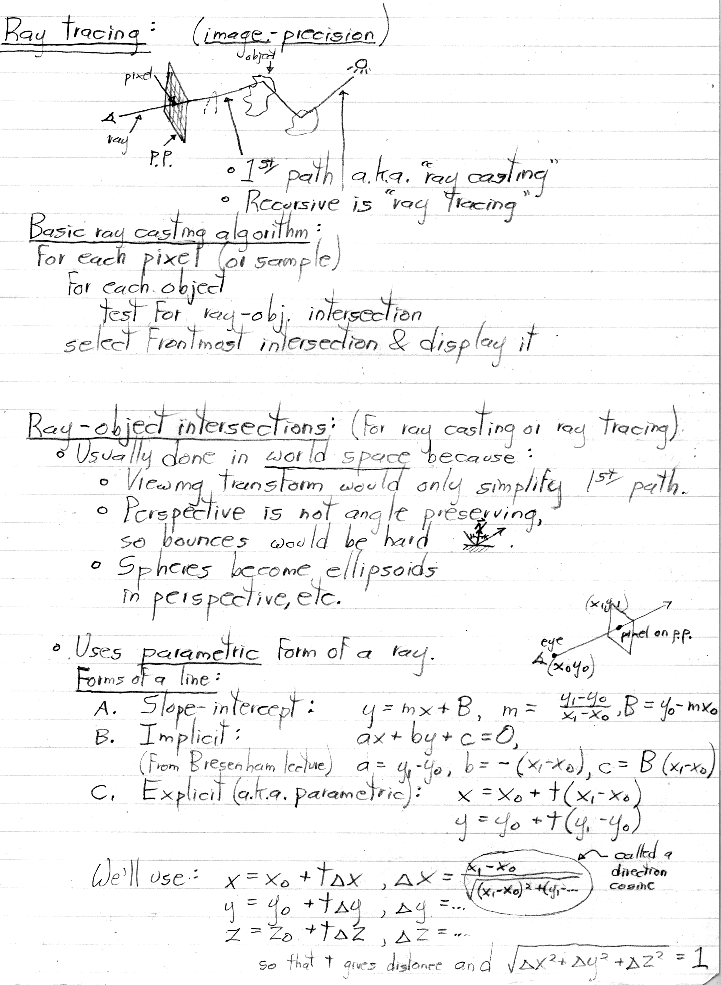 Ray tracing: (image-precision)
object
pixel
ray
P.P.
• 1st path a.k.a. "ray casting"
• Recursive is "ray tracing"
Basic ray casting algorithm:
For each pixel (or sample)
For each object
test for ray-obj. intersection
select frontmost intersection & display it
Ray-object intersections: (for ray casting or ray tracing)
• Usually done in world space because:
• Viewing transform would only simplify 1st path.
• Perspective is not angle preserving,
so bounces would be hard .
• Spheres become ellipsoids
in perspective, etc.
(x₁y₁)
eye
pixel on P.P.
(x₀y₀)
• Uses parametric form of a ray.
Forms of a line:
A. Slope-intercept: y = mx + B, m = y₁-y₀ / x₁-x₀, B = y₀-mx₀
B. Implicit: ax + by + c = 0,
(From Bresenham lecture) a = y₁-y₀, b = -(x₁-x₀), c = B(x₁-x₀)
C. Explicit (a.k.a. parametric): x = x₀ + t(x₁-x₀)
y = y₀ + t(y₁-y₀)
We'll use: x = x₀ + t∆x, ∆x = x₁-x₀ / √(x₁-x₀)²+(y₁-...
called a
direction
cosine
y = y₀ + t∆y, ∆y = ...
z = z₀ + t∆z, ∆z = ...
so that t gives distance and √∆x²+∆y²+∆z² = 1